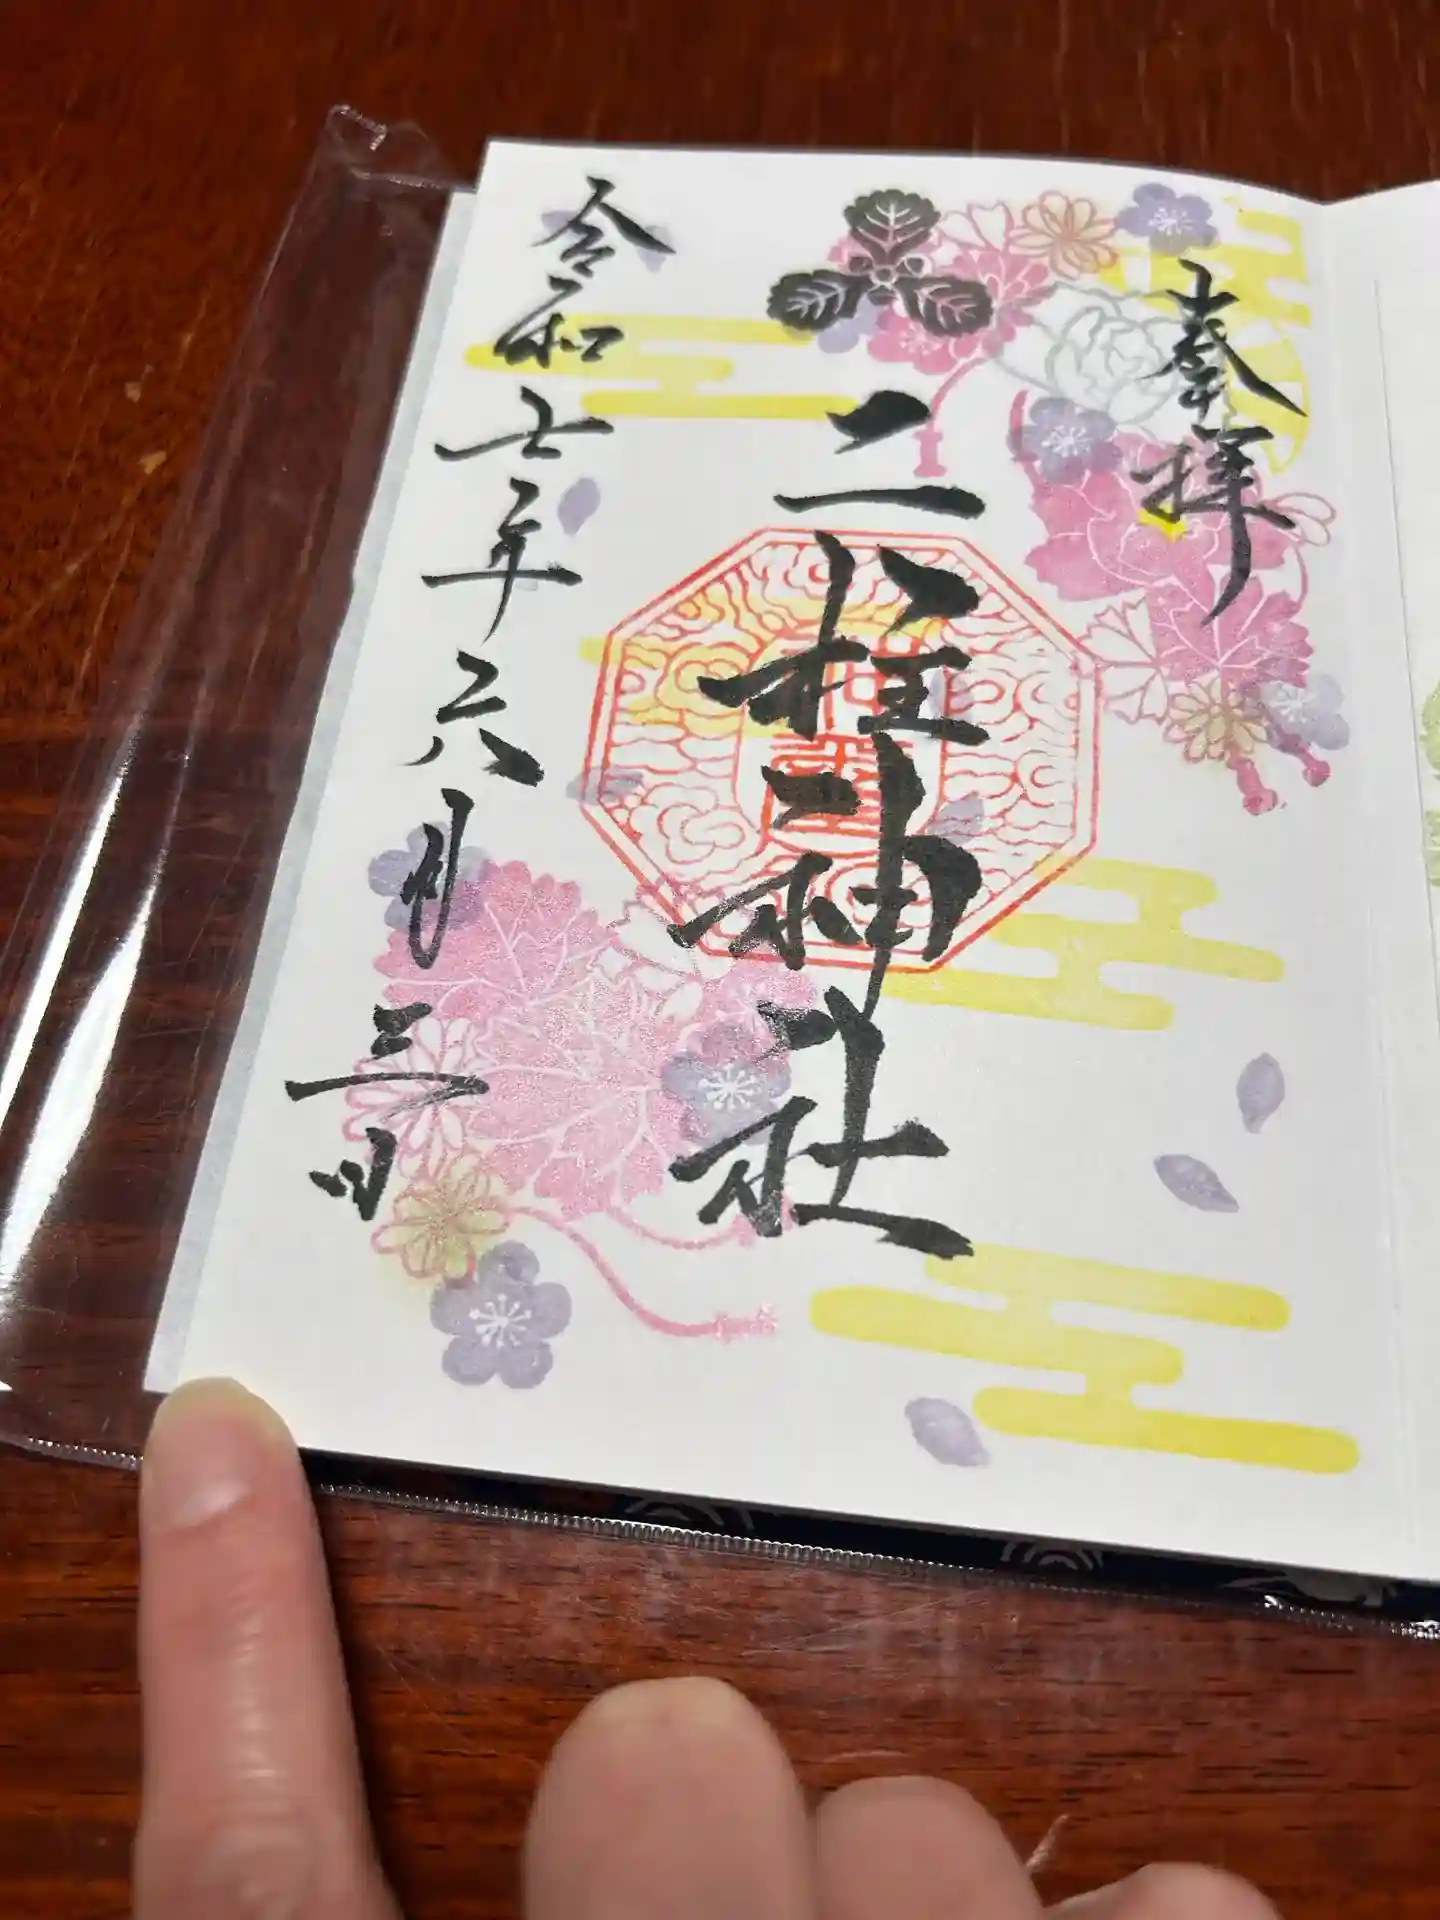 奉拝
二柱神社
令和七年六月三日